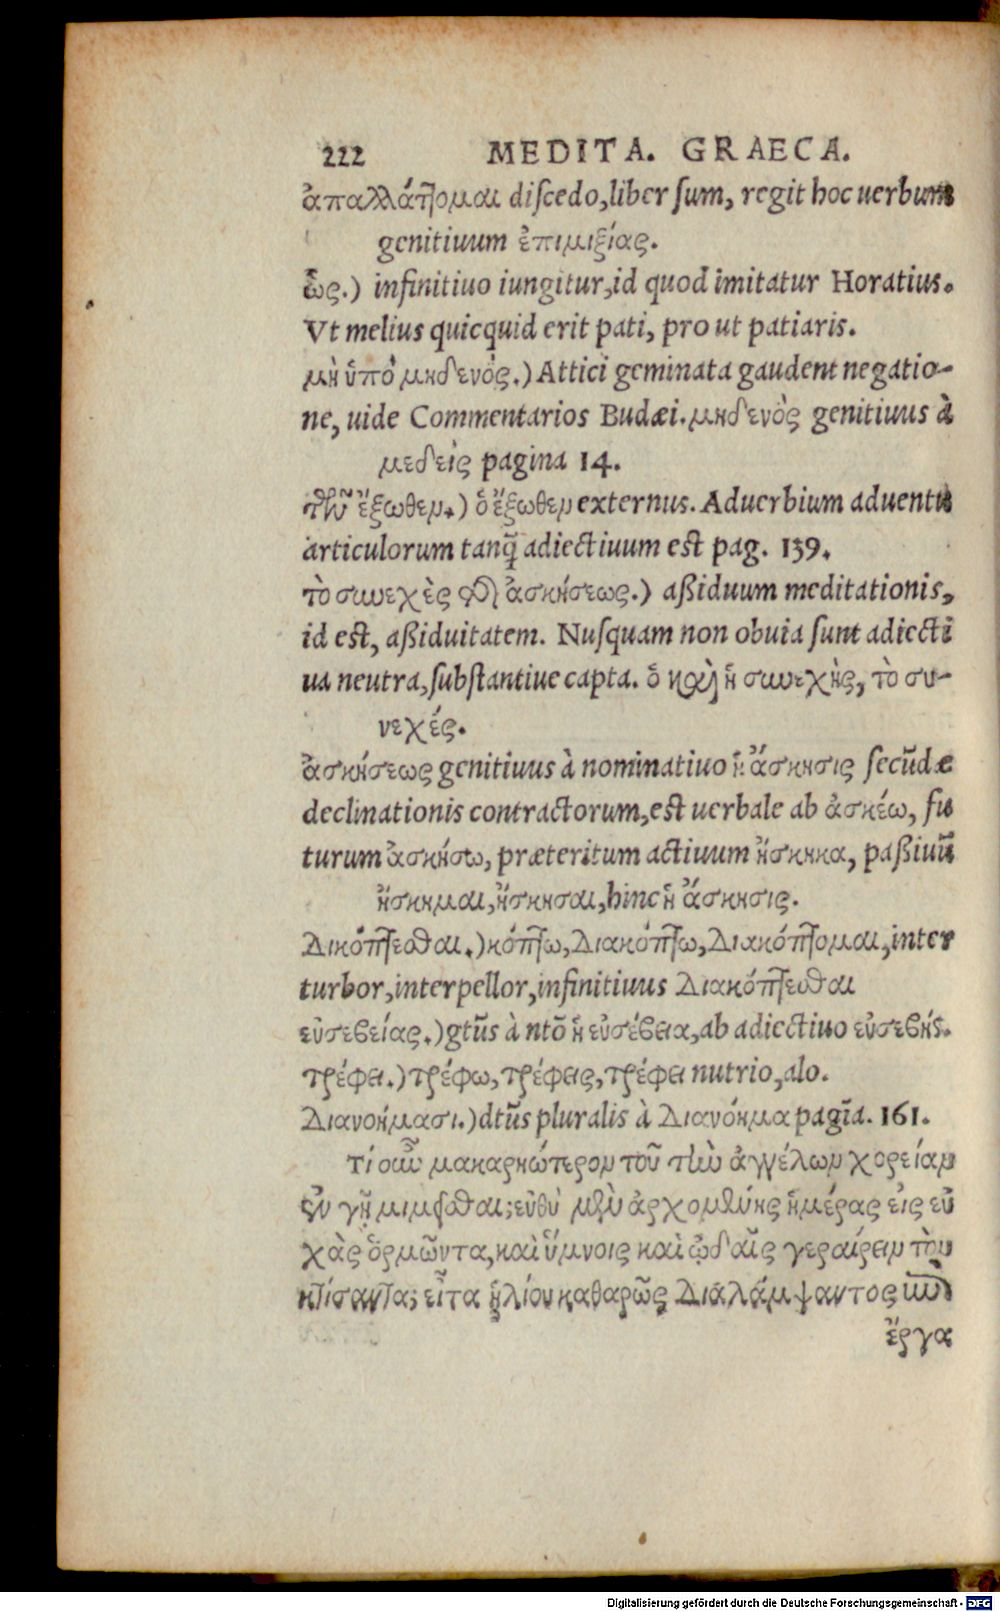 222 MEDITA. GRAECA.
ἀπαλλάττομαι discedo, liber sum, regit hoc uerbum
genitiuum ἐπιμιξίας.
ἕως.) infinitiuo iungitur, id quod imitatur Horatius.
Vt melius quicquid erit pati, pro ut patiaris.
μὴ ὑπὸ μηδενὸς.) Attici geminata gaudent negatio-
ne, uide Commentarios Budæi. μηδενὸς genitiuus à
μεδεὶς pagina 14.
τῶν ἔξωθεν.) ὁ ἔξωθεν externus. Aduerbium aduentu
articulorum tanq̃ adiectiuum est pag. 139.
τὸ συνεχὲς τῆς ἀσκήσεως.) aßiduum meditationis,
id est, aßiduitatem. Nusquam non obuia sunt adiecti
ua neutra, substantiue capta. ὁ καὶ ἡ συνεχὴς, τὸ συ-
νεχές.
ἀσκήσεως genitiuus à nominatiuo ἡ ἄσκησις secũdæ
declinationis contractorum, est uerbale ab ἀσκέω, fu
turum ἀσκήσω, præteritum actiuum ἤσκηκα, paßiuũ
ἤσκημαι, ἤσκησαι, hinc ἡ ἄσκησις.
Δικόπτεσθαι.) κόπτω, Διακόπτω, Διακόπτομαι, inter
turbor, interpellor, infinitiuus Διακόπτεσθαι
εὐσεβείας.) gtũs à ntõ ἡ εὐσέβεια, ab adiectiuo εὐσεβής.
τρέφει.) τρέφω, τρέφεις, τρέφει nutrio, alo.
Διανοήμασι.) dtũs pluralis à Διανόημα pagĩa. 161.
τί οὖν μακαριώτερον τοῦ τὴν ἀγγέλων χορείαν
ἐν γῇ μιμεῖσθαι; εὐθὺ μὲν ἀρχομένης ἡμέρας εἰς εὐ
χὰς ὁρμῶντα, καὶ ὕμνοις καὶ ᾠδαῖς γεραίρειν τὸν
κτίσαντα; εἶτα ἡλίου καθαρῶς Διαλάμψαντος
ἔργα
Digitalisierung gefördert durch die Deutsche Forschungsgemeinschaft - DFG